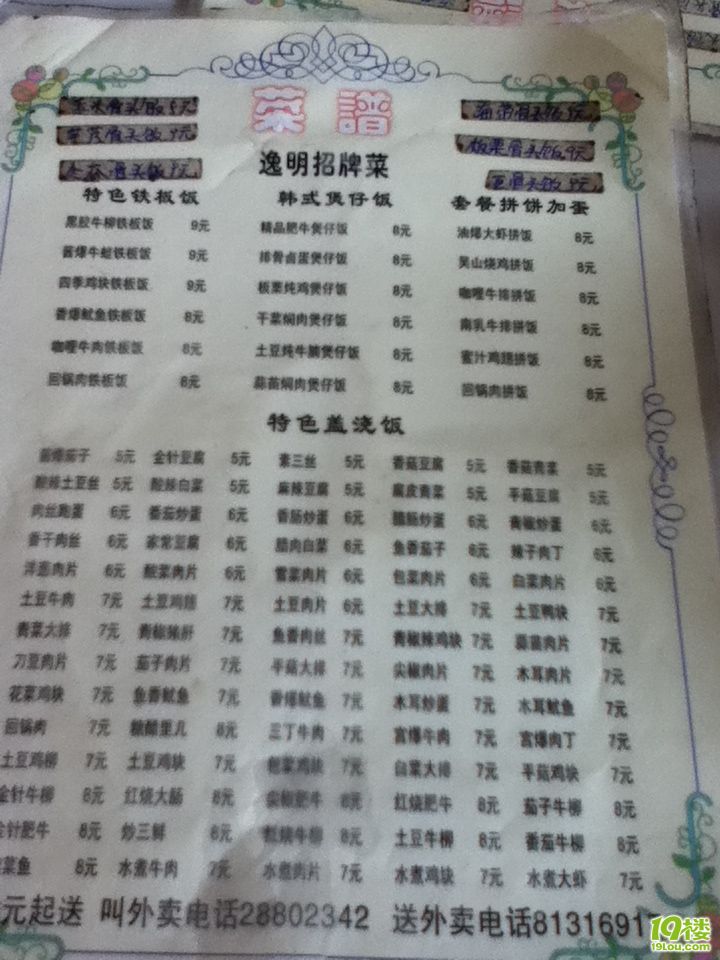 菜谱
逸明招牌菜
特色铁板饭 韩式煲仔饭 套餐拼饼加蛋
黑胶牛柳铁板饭 9元 精品肥牛煲仔饭 8元 油爆大虾拼饭 8元
酱爆牛蛙铁板饭 9元 排骨卤蛋煲仔饭 8元 吴山烧鸡拼饭 8元
四季鸡块铁板饭 9元 板栗炖鸡煲仔饭 8元 咖喱牛排拼饭 8元
香爆鱿鱼铁板饭 8元 干菜焖肉煲仔饭 8元 南乳牛排拼饭 8元
咖喱牛肉铁板饭 8元 土豆炖牛腩煲仔饭 8元 蜜汁鸡翅拼饭 8元
回锅肉铁板饭 8元 蒜苗焖肉煲仔饭 8元 回锅肉拼饭 8元
特色盖浇饭
酱爆茄子 5元 金针豆腐 5元 素三丝 5元 香菇豆腐 5元 香菇青菜 5元
酸辣土豆丝 5元 酸辣白菜 5元 麻辣豆腐 5元 腐皮青菜 5元 平菇豆腐 5元
肉丝跑蛋 6元 番茄炒蛋 6元 香肠炒蛋 6元 腊肠炒蛋 6元 青椒炒蛋 6元
香干肉丝 6元 家常豆腐 6元 腊肉白菜 6元 鱼香茄子 6元 辣子肉丁 6元
洋葱肉片 6元 酸菜肉片 6元 雪菜肉片 6元 包菜肉片 6元 白菜肉片 6元
土豆牛肉 7元 土豆鸡翅 7元 土豆肉片 6元 土豆大排 7元 土豆鸭块 7元
青菜大排 7元 青椒猪肝 7元 鱼香肉丝 7元 青椒辣鸡块 7元 蒜苗肉片 7元
刀豆肉片 7元 茄子肉片 7元 平菇大排 7元 尖椒肉片 7元 木耳肉片 7元
花菜鸡块 7元 鱼香鱿鱼 7元 香爆鱿鱼 7元 木耳炒蛋 7元 木耳鱿鱼 7元
回锅肉 7元 糖醋里几 8元 三丁牛肉 7元 宫爆牛肉 7元 宫爆肉丁 7元
土豆鸡柳 7元 土豆鸡块 7元 包菜鸡块 7元 白菜大排 7元 平菇鸡块 7元
金针牛柳 8元 红烧大肠 8元 尖椒肥牛 8元 红烧肥牛 8元 茄子牛柳 8元
金针肥牛 8元 炒三鲜 8元 牛柳 8元 土豆牛柳 8元 番茄牛柳 8元
菜鱼 8元 水煮牛肉 7元 水煮肉片 7元 水煮鸡块 7元 水煮大虾 7元
元起送 叫外卖电话28802342 送外卖电话8131691
19楼
19lou.com